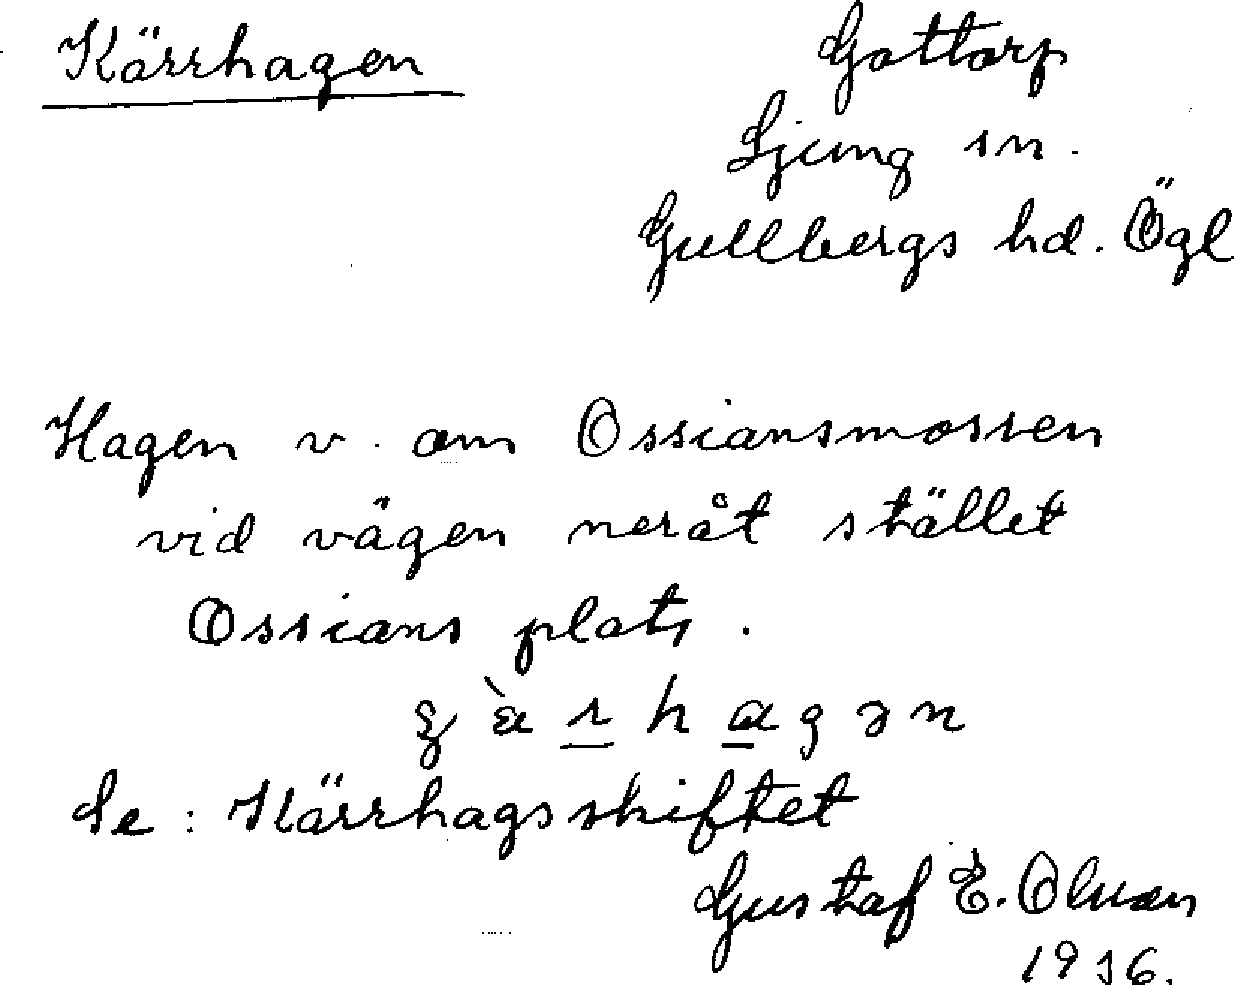 Kärrhagen
Gottorp
Ljung sn.
Gullbergs hd. Ögl
Hagen v. om Ossiansmossen
vid vägen neråt stället
Ossians plats.
Se: Kärrhagsskiftet
Gustaf E. Olsson